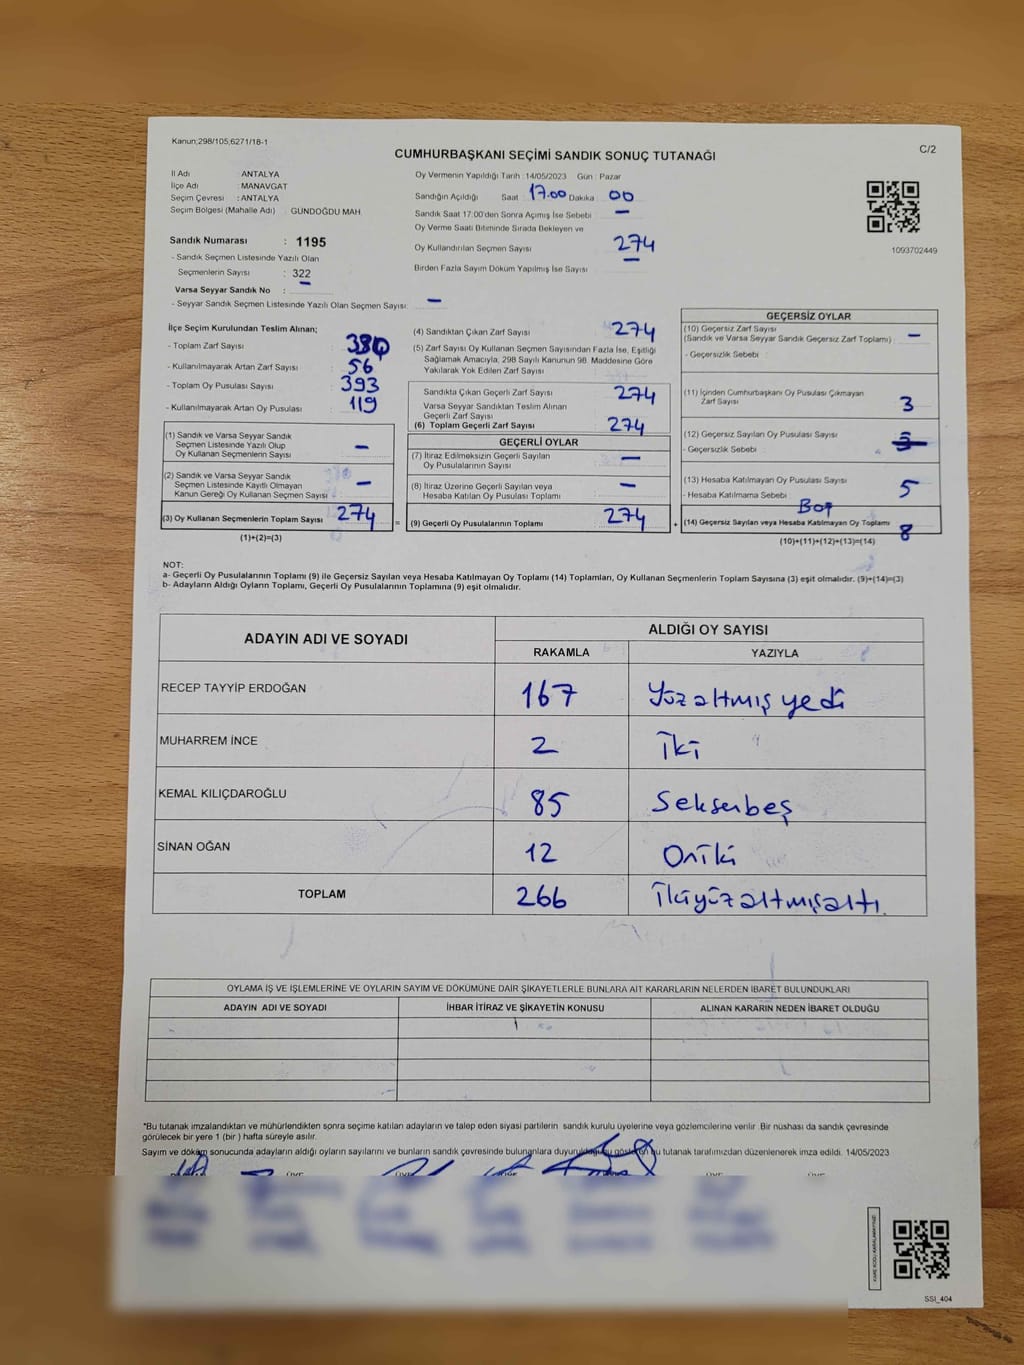 Kanun;298/105,6271/18-1
C/2
CUMHURBAŞKANI SEÇİMİ SANDIK SONUÇ TUTANAĞI
İl Adı : ANTALYA
İlçe Adı : MANAVGAT
Seçim Çevresi : ANTALYA
Seçim Bölgesi (Mahalle Adı) : GÜNDOĞDU MAH.
Sandık Numarası : 1195
- Sandık Seçmen Listesinde Yazılı Olan
Seçmenlerin Sayısı : 322
Varsa Seyyar Sandık No : –
- Seyyar Sandık Seçmen Listesinde Yazılı Olan Seçmen Sayısı: –
Oy Vermenin Yapıldığı Tarih : 14/05/2023 Gün : Pazar
Sandığın Açıldığı Saat : 17.00 Dakika : 00
Sandık Saat 17:00'den Sonra Açımış İse Sebebi : –
Oy Verme Saati Bitiminde Sırada Bekleyen ve
Oy Kullandırılan Seçmen Sayısı : 274
Birden Fazla Sayım Döküm Yapılmış İse Sayısı : –
1093702449
İlçe Seçim Kurulundan Teslim Alınan;
- Toplam Zarf Sayısı : 330
- Kullanılmayarak Artan Zarf Sayısı : 56
- Toplam Oy Pusulası Sayısı : 393
- Kullanılmayarak Artan Oy Pusulası : 119
(1) Sandık ve Varsa Seyyar Sandık
Seçmen Listesinde Yazılı Olup
Oy Kullanan Seçmenlerin Sayısı : –
(2) Sandık ve Varsa Seyyar Sandık
Seçmen Listesinde Kayıtlı Olmayan
Kanun Gereği Oy Kullanan Seçmen Sayısı : –
(3) Oy Kullanan Seçmenlerin Toplam Sayısı : 274
(1)+(2)=(3)
(4) Sandıktan Çıkan Zarf Sayısı : 274
(5) Zarf Sayısı Oy Kullanan Seçmen Sayısından Fazla İse, Eşitliği
Sağlamak Amacıyla, 298 Sayılı Kanunun 98. Maddesine Göre
Yakılarak Yok Edilen Zarf Sayısı :
Sandıkta Çıkan Geçerli Zarf Sayısı : 274
Varsa Seyyar Sandıktan Teslim Alınan
Geçerli Zarf Sayısı
(6) Toplam Geçerli Zarf Sayısı : 274
GEÇERLİ OYLAR
(7) İtiraz Edilmeksizin Geçerli Sayılan
Oy Pusulalarının Sayısı : –
(8) İtiraz Üzerine Geçerli Sayılan veya
Hesaba Katılan Oy Pusulası Toplamı : –
= (9) Geçerli Oy Pusulalarının Toplamı : 274
GEÇERSİZ OYLAR
(10) Geçersiz Zarf Sayısı
(Sandık ve Varsa Seyyar Sandık Geçersiz Zarf Toplamı) : –
- Geçersizlik Sebebi :
(11) İçinden Cumhurbaşkanı Oy Pusulası Çıkmayan
Zarf Sayısı : 3
(12) Geçersiz Sayılan Oy Pusulası Sayısı :
- Geçersizlik Sebebi :
(13) Hesaba Katılmayan Oy Pusulası Sayısı : 5
- Hesaba Katılmama Sebebi : Boş
+ (14) Geçersiz Sayılan veya Hesaba Katılmayan Oy Toplamı : 8
(10)+(11)+(12)+(13)=(14)
NOT:
a- Geçerli Oy Pusulalarının Toplamı (9) ile Geçersiz Sayılan veya Hesaba Katılmayan Oy Toplamı (14) Toplamları, Oy Kullanan Seçmenlerin Toplam Sayısına (3) eşit olmalıdır. (9)+(14)=(3)
b- Adayların Aldığı Oyların Toplamı, Geçerli Oy Pusulalarının Toplamına (9) eşit olmalıdır.
ADAYIN ADI VE SOYADI ALDIĞI OY SAYISI
RAKAMLA YAZIYLA
RECEP TAYYİP ERDOĞAN 167 Yüzaltmış yedi
MUHARREM İNCE 2 İki
KEMAL KILIÇDAROĞLU 85 Seksenbeş
SİNAN OĞAN 12 Oniki
TOPLAM 266 İkiyüzaltmışaltı.
OYLAMA İŞ VE İŞLEMLERİNE VE OYLARIN SAYIM VE DÖKÜMÜNE DAİR ŞİKAYETLERLE BUNLARA AİT KARARLARIN NELERDEN İBARET BULUNDUKLARI
ADAYIN ADI VE SOYADI İHBAR İTİRAZ VE ŞİKAYETİN KONUSU ALINAN KARARIN NEDEN İBARET OLDUĞU
*Bu tutanak imzalandıktan ve mühürlendikten sonra seçime katılan adayların ve talep eden siyasi partilerin sandık kurulu üyelerine veya gözlemcilerine verilir. Bir nüshası da sandık çevresinde
görülecek bir yere 1 (bir ) hafta süreyle asılır.
Sayım ve döküm sonucunda adayların aldığı oyların sayılarını ve bunların sandık çevresinde bulunanlara duyurulduğunu gösteren bu tutanak tarafımızdan düzenlenerek imza edildi. 14/05/2023
KARE KODU KARALAMAYINIZ!
SSI_404